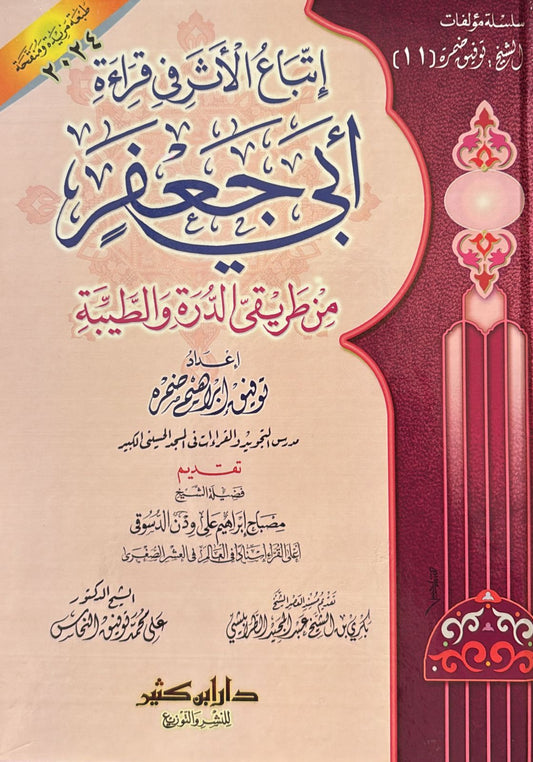 سلسلة مؤلفات
الشيخ: توفيق ضمرة (١١)
طبعة مزيدة ومنقحة
٢٠٢٤
إتباعُ الأثر في قراءة
أبي جَعفَر
من طريقي الدرة والطيبة
إعداد
توفيق إبراهيم ضمره
مدرس التجويد والقراءات في المسجد الحسيني الكبير
تقديم
فضيلة الشيخ
مصباح إبراهيم علي ودن الدسوقي
أعلى القراء إسنادا في العالم في العشر الصغرى
تقديم مسند العصر الشيخ
بكري بن الشيخ عبد المجيد الطرابيشي
الشيخ الدكتور
علي محمد توفيق النحاس
دار ابن كثير
للنشر والتوزيع